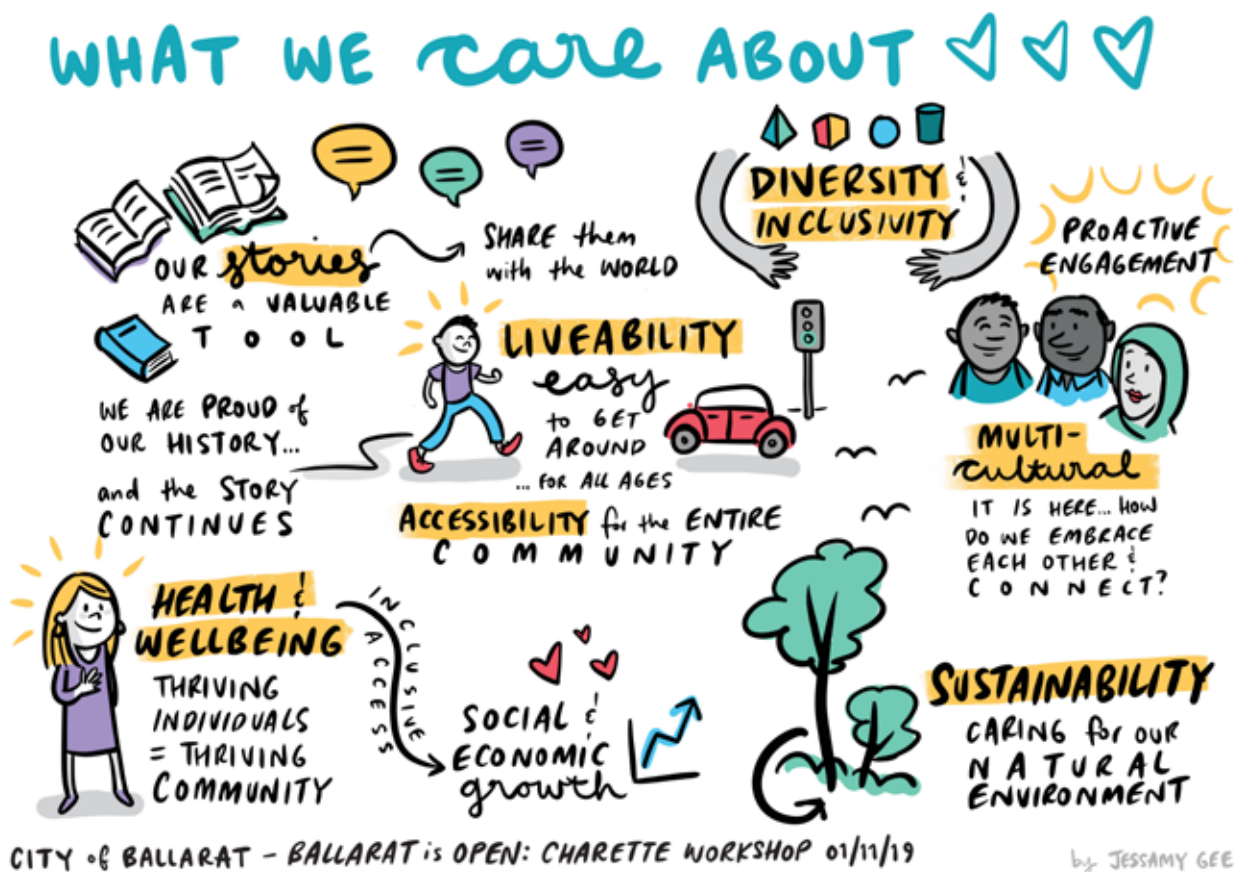 WHAT WE care ABOUT
OUR stories
ARE a VALUABLE
TOOL
SHARE them
with the WORLD
WE ARE PROUD of
OUR HISTORY...
and the STORY
CONTINUES
LIVEABILITY
easy
to GET
AROUND
... FOR ALL AGES
ACCESSIBILITY for the ENTIRE
COMMUNITY
DIVERSITY &
INCLUSIVITY
PROACTIVE
ENGAGEMENT
MULTI-
cultural
IT IS HERE... HOW
DO WE EMBRACE
EACH OTHER &
CONNECT?
HEALTH &
WELLBEING
THRIVING
INDIVIDUALS
= THRIVING
COMMUNITY
INCLUSIVE
ACCESS
SOCIAL &
ECONOMIC
growth
SUSTAINABILITY
CARING for OUR
NATURAL
ENVIRONMENT
CITY of BALLARAT - BALLARAT is OPEN: CHARETTE WORKSHOP 01/11/19
by JESSAMY GEE